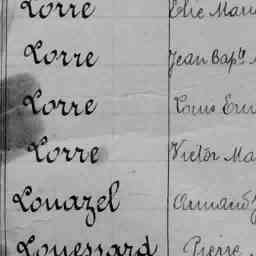 Lorre Elie Mari
Lorre Jean Bapte
Lorre Louis Em
Lorre Victor Ma
Louazel Armand
Louessard Pierre